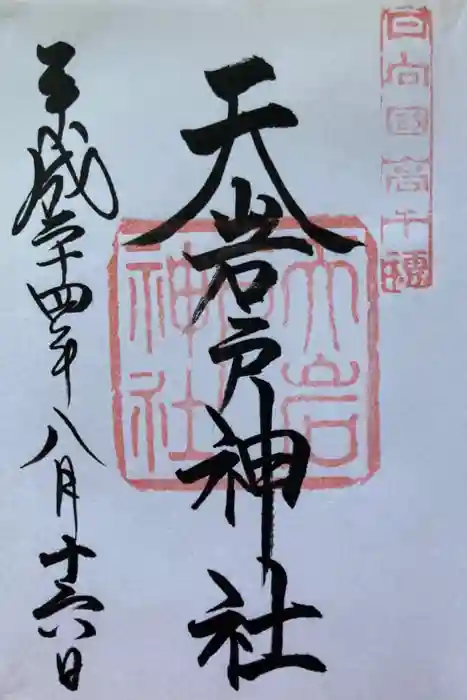 日向國高千穗
天岩戸神社
天岩戸
神社
平成二十四年八月十六日